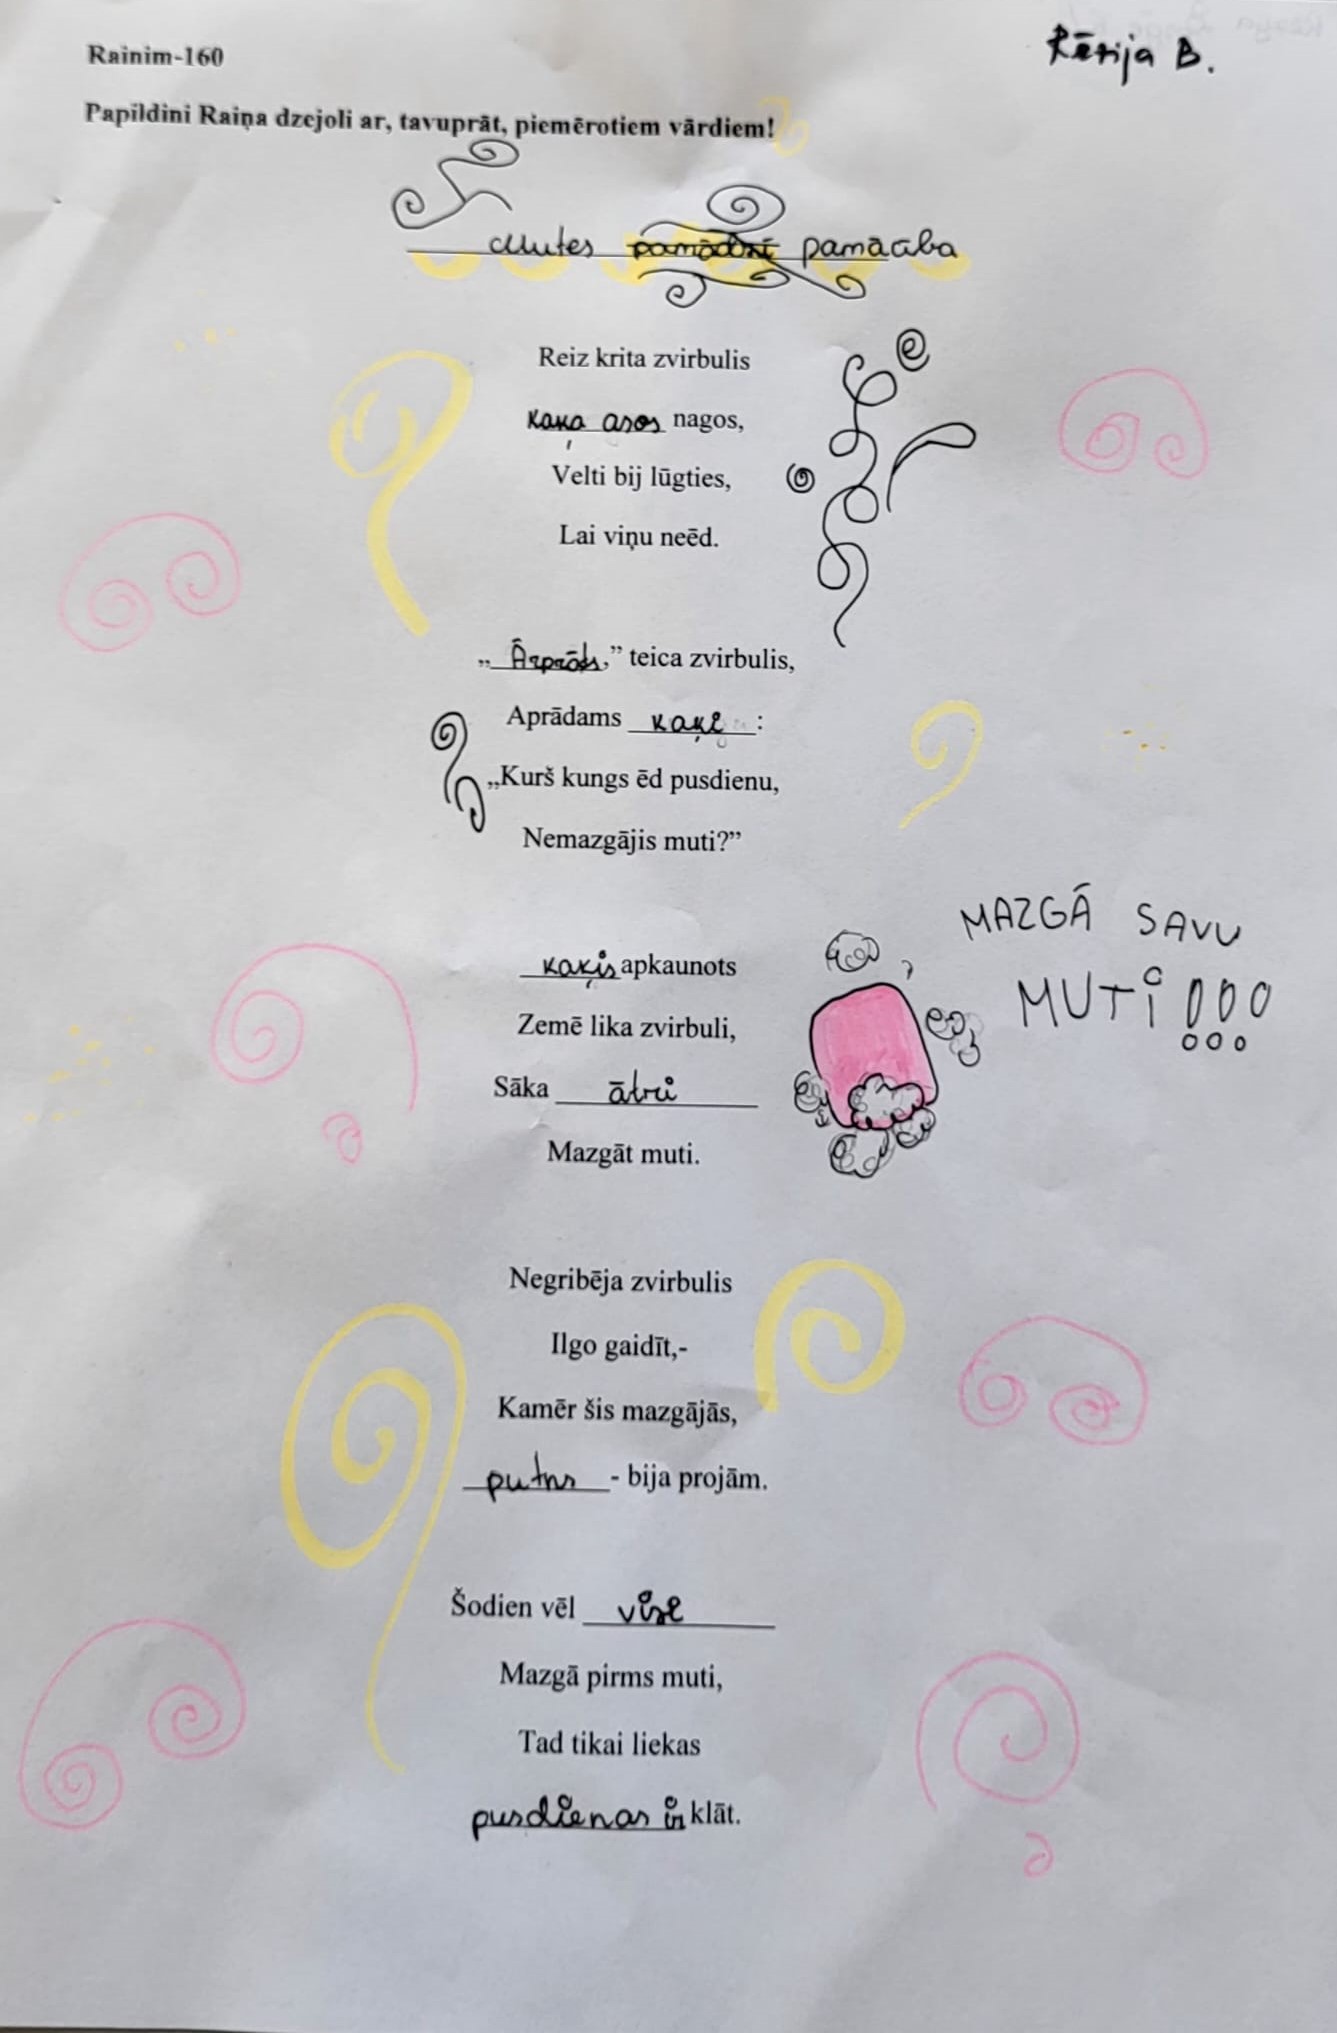 Rainim-160
Ķērija B.
Papildini Raiņa dzejoli ar, tavuprāt, piemērotiem vārdiem!
Mutes pamācība
Reiz krita zvirbulis
kaķa asos nagos,
Velti bij lūgties,
Lai viņu neēd.
„Ārprāts,” teica zvirbulis,
Aprādams kaķi :
„Kurš kungs ēd pusdienu,
Nemazgājis muti?”
kaķis apkaunots
Zemē lika zvirbuli,
Sāka ātri
Mazgāt muti.
MAZGĀ SAVU
MUTI!!!
Negribēja zvirbulis
Ilgo gaidīt,-
Kamēr šis mazgājās,
putns - bija projām.
Šodien vēl visi
Mazgā pirms muti,
Tad tikai liekas
pusdienas ir klāt.